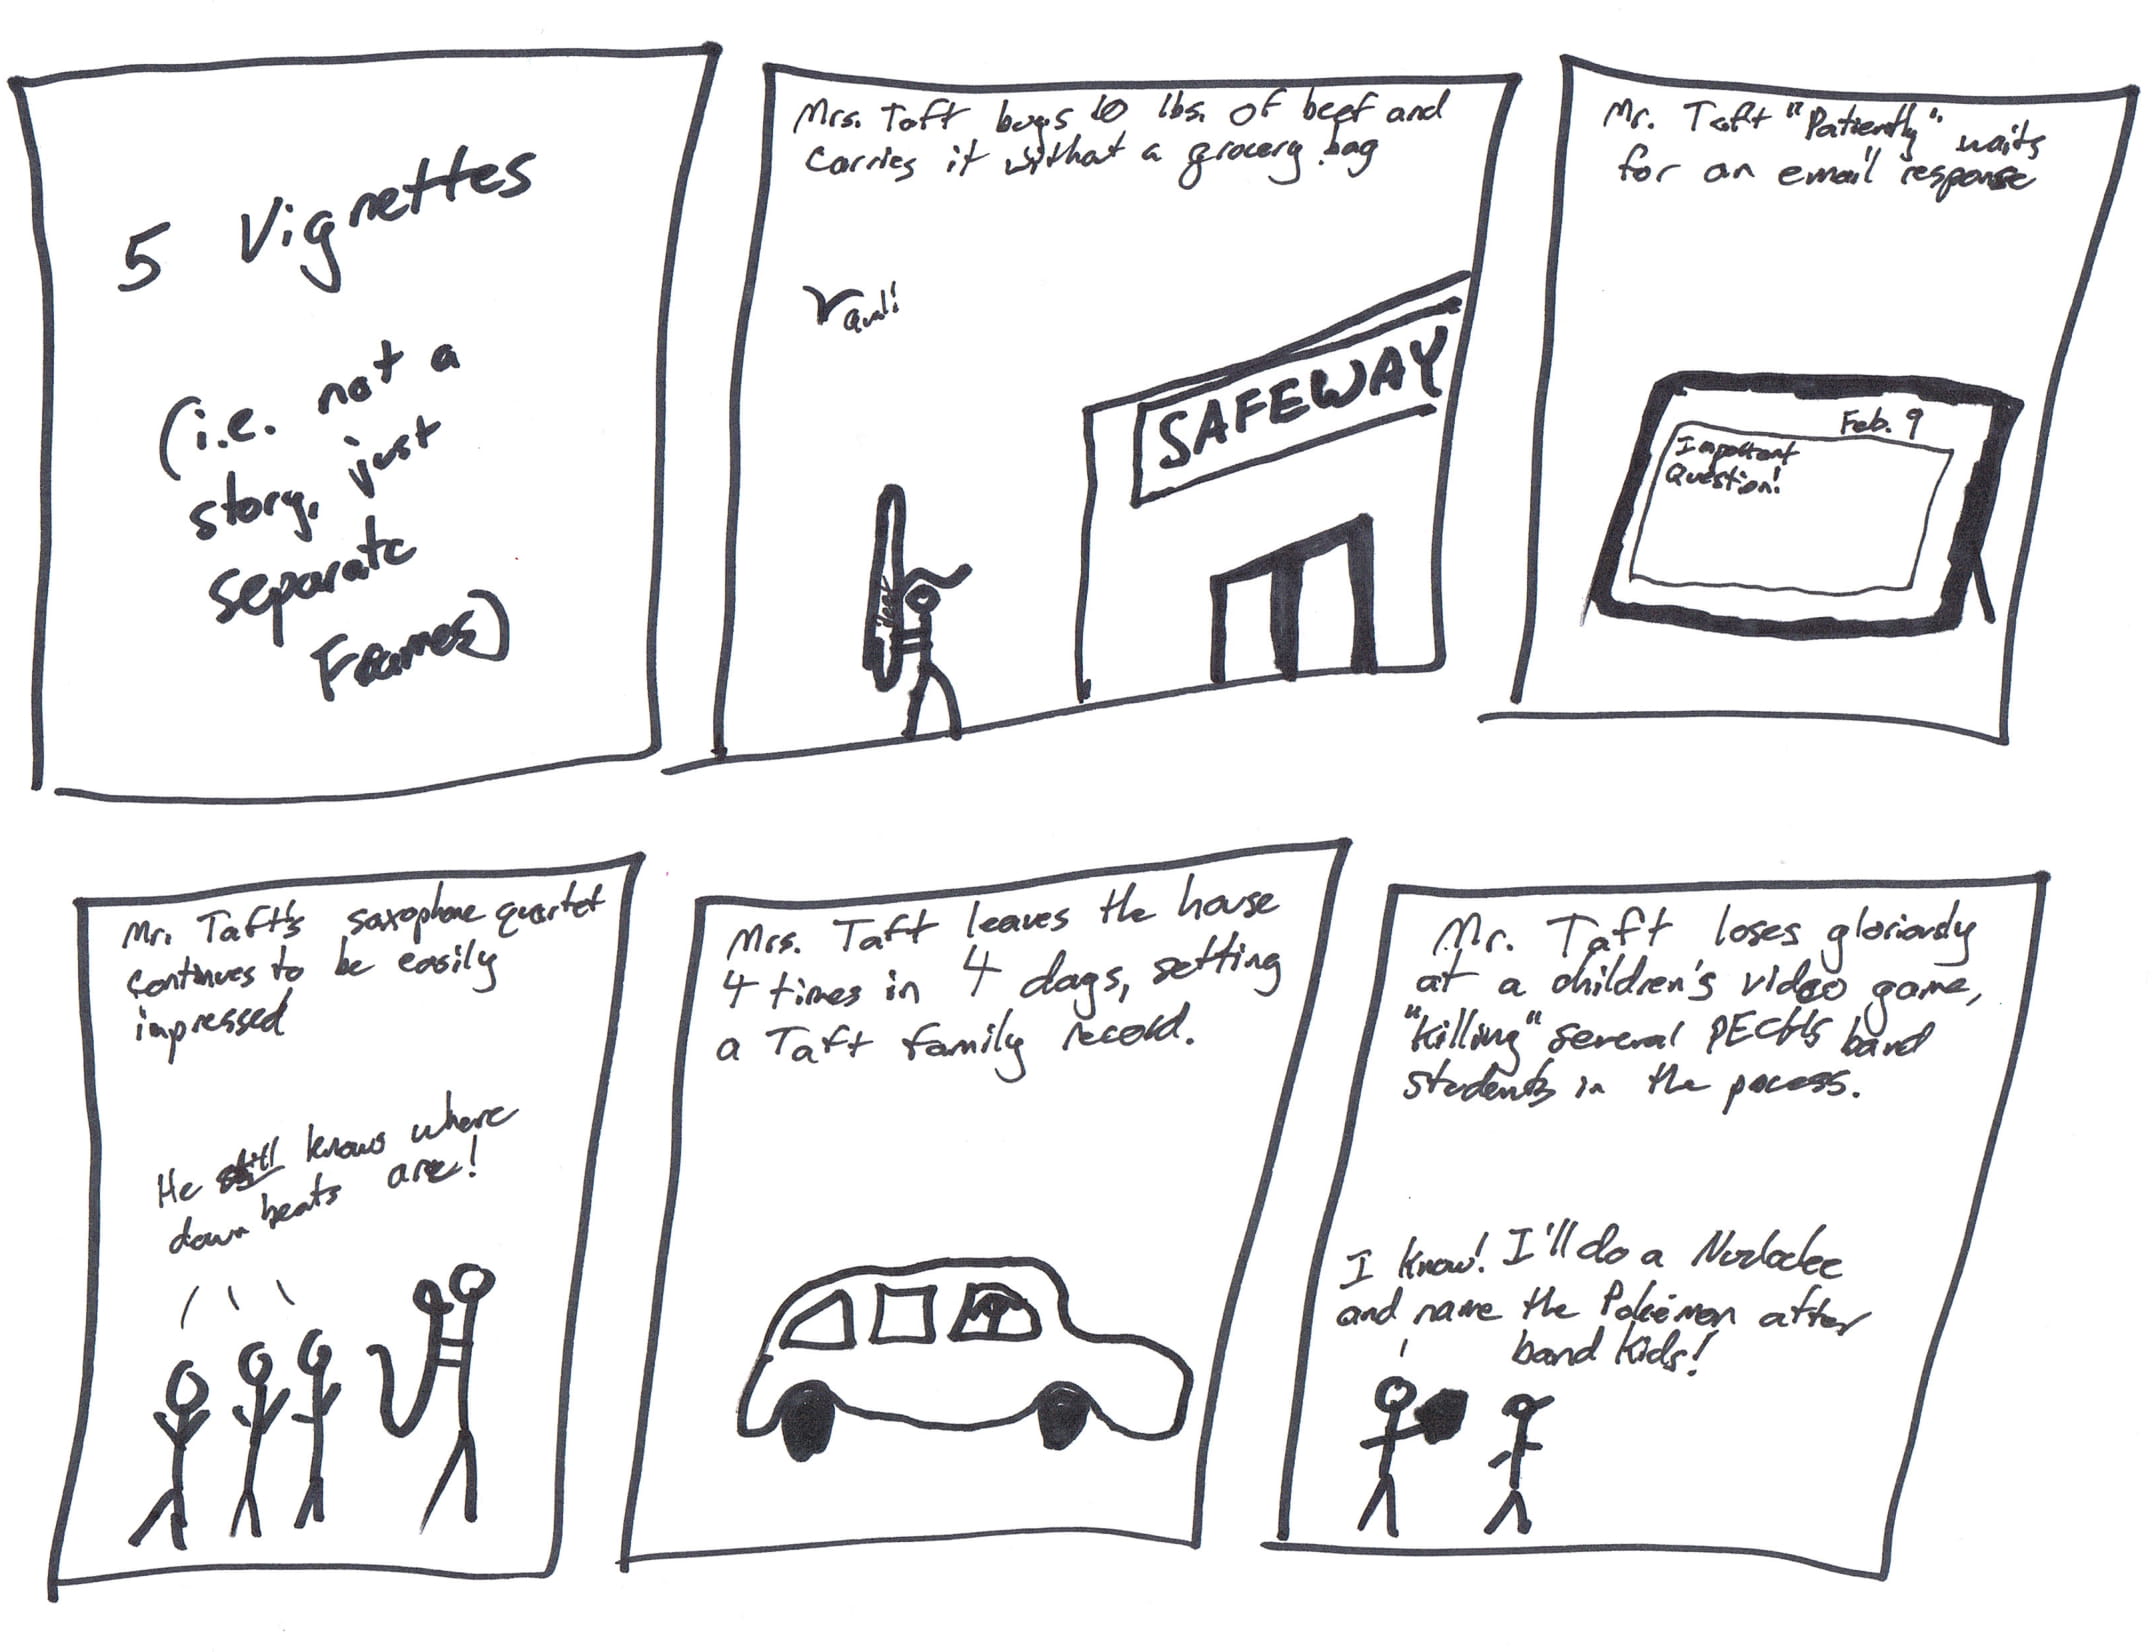 5 Vignettes
(i.e. not a
story, just
separate
Frames)
Mrs. Taft buys 10 lbs. of beef and
carries it without a grocery bag
SAFEWAY
Mr. Taft "Patiently" waits
for an email response
Feb. 9
Important
Question!
Mr. Taft's saxophone quartet
continues to be easily
impressed
He still knows where
down beats are!
Mrs. Taft leaves the house
4 times in 4 days, setting
a Taft family record.
Mr. Taft loses gloriously
at a children's video game,
"killing" several PECHS band
students in the process.
I know! I'll do a Nuzlocke
and name the Pokémon after
band kids!